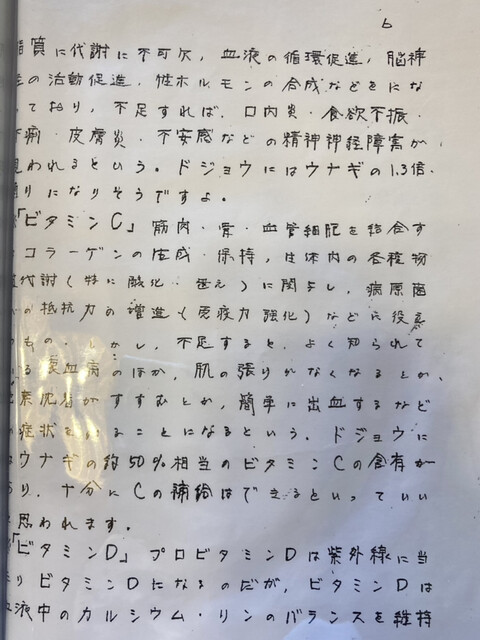 6
脂質に代謝に不可欠，血液の循環促進，脳神
の活動促進．性ホルモンの合成などをにな
ており，不足すれば，口内炎・食欲不振・
下痢・皮膚炎・不安感などの精神神経障害が，
現われるという。ドジョウにはウナギの1.3倍．
頼りになりそうですよ。
「ビタミンC」 筋肉・骨・血管細胞を結合す
コラーゲンの生成・保持，は体内の各種物
質代謝(特に酸化・還元)に関与し，病原菌
の抵抗力の増進(免疫力強化)などに役立
もの・しかし，不足すると，よく知られて
いる壊血病のほか，肌の張りがなくなるとか，
色素沈着がすすむとか，簡単に出血するなど
の症状を みることになるという．ドジョウに
はウナギの約50%相当のビタミンCの含有が
あり．十分にCの補給はできるといっていい
と思われます。
「ビタミンD」 プロビタミンDは紫外線に当
たりビタミンDになるのだが，ビタミンDは
血液中のカルシウム・リンのバランスを維持